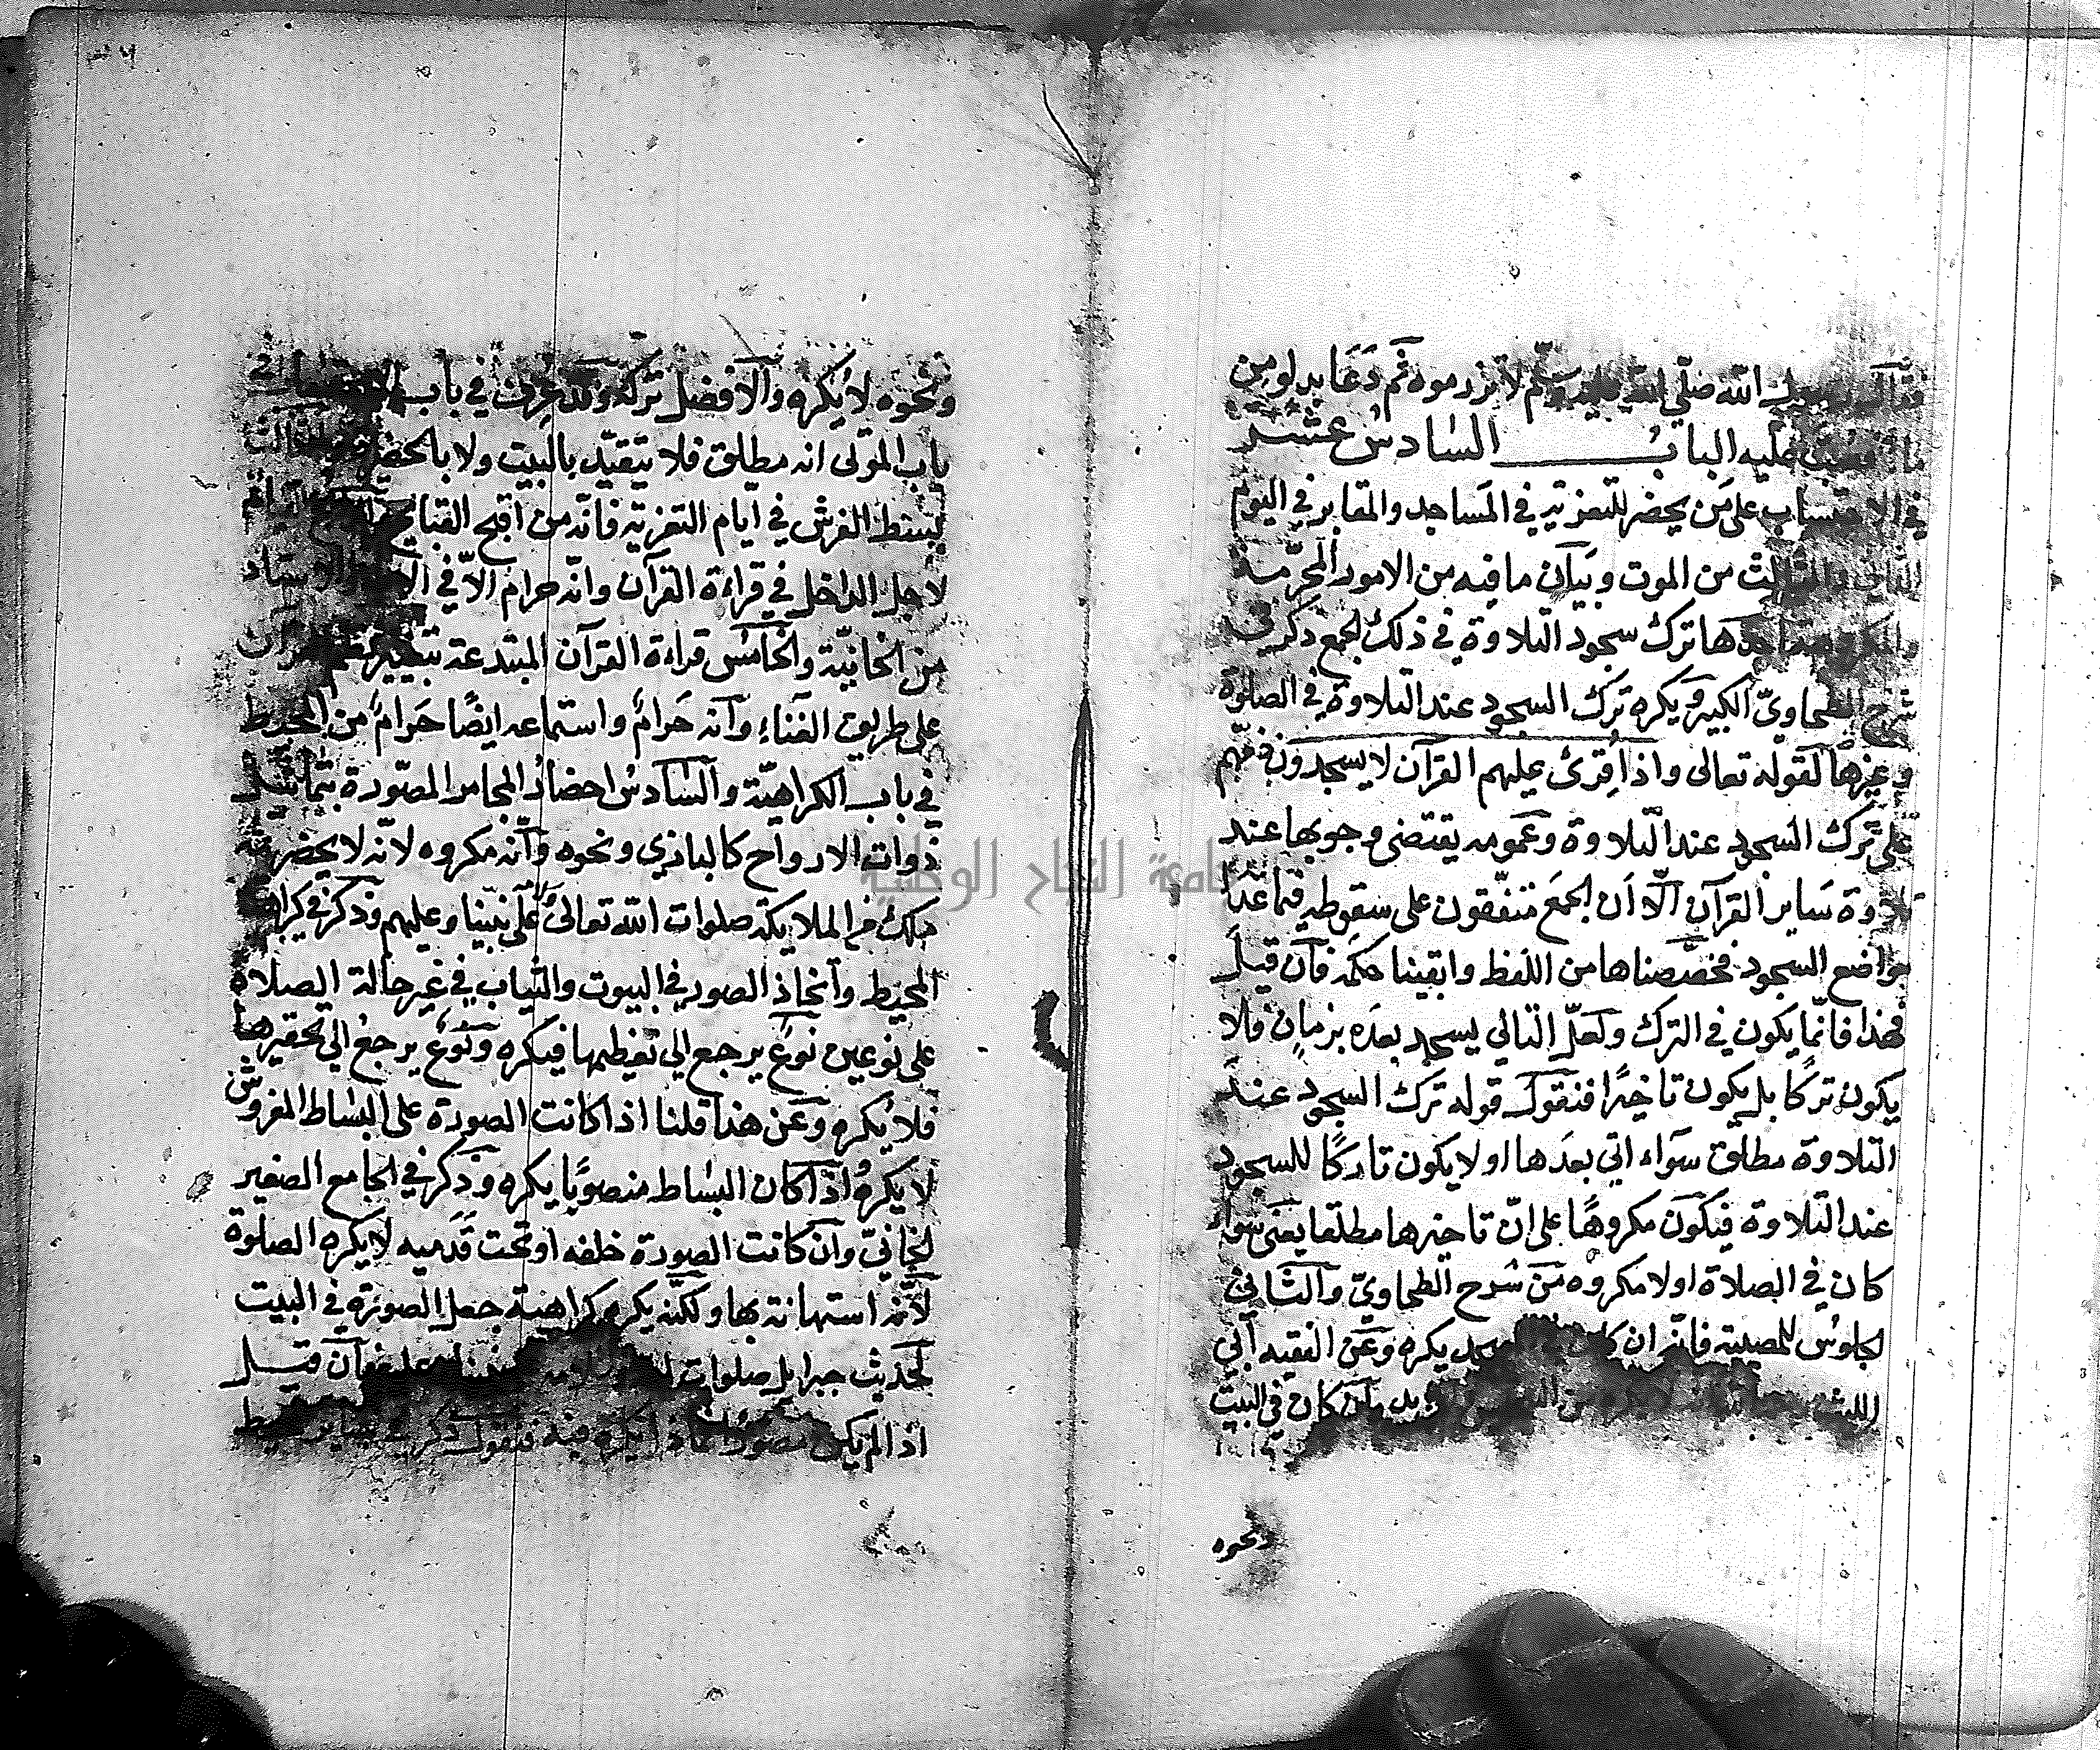 الله صلى الله عليه وسلم لا تزرموه ثم دعا بدلو من
عليه الباب السادس عشر
في الاحتساب على من يحضر للتعزية في المساجد والمقابر في اليوم
والثالث من الموت وبيان ما فيه من الامور المحرمة
احدها ترك سجود التلاوة في ذلك الجمع ذكر في
شرح الطحاوي الكبير ويكره ترك السجود عند التلاوة في الصلوة
وغيرها لقوله تعالى واذا قرئ عليهم القرآن لا يسجدون ذمهم
على ترك السجود عند التلاوة وعمومه يقتضي وجوبها عند
تلاوة ساير القرآن الا ان الجمع متفقون على سقوطه فيما عدا
مواضع السجود فخصصناها من اللفظ وابقينا حكمه فان قيل
فهذا فانما يكون في الترك ولعل التالي يسجد بعده بزمان فلا
يكون تركا بل يكون تاخيرا فنقول قوله ترك السجود عند
التلاوة مطلق سواء اتي بعدها او لا يكون تاركا للسجود
عند التلاوة فيكون مكروها على ان تاخيرها مطلقا يعني سواء
كان في الصلاة او لا مكروه من شرح الطحاوي والثاني
الجلوس للمصيبة فانه ان كان يكره وعن الفقيه ابي
الليث كان في البيت
ونحوه
ونحوه لا يكره والافضل تركه وقد عرف في باب
باب الموتى انه مطلق فلا يتقيد بالبيت ولا
بسط الفرش في ايام التعزية فانه من اقبح القبايح
لاجل الداخل في قراءة القرآن وانه حرام الا في
من الخانية والخامس قراءة القرآن المبتدعة بتغيير
على طريق الغناء وانه حرام واستماعه ايضا حرام من المحيط
في باب الكراهية والسادس احضار المجامر المصورة بتماثيل
ذوات الارواح كالبازي ونحوه وانه مكروه لانه لا يحضر
ملك من الملايكة صلوات الله تعالى على نبينا وعليهم وذكر في
المحيط واتخاذ الصور في البيوت والثياب في غير حالة الصلاة
على نوعين نوع يرجع الى تعظيمها فيكره ونوع يرجع الى تحقيرها
فلا يكره وعن هذا قلنا اذا كانت الصورة على البساط المفروش
لا يكره اذا كان البساط منصوبا يكره وذكر في الجامع الصغير
الخاني وان كانت الصورة خلفه او تحت قدميه لا يكره الصلوة
لانه استهانة بها ولكنه يكره كراهية جعل الصورة في البيت
لحديث جبرايل صلوات فان قيل
اذا لم يكن فنقول ذكر في